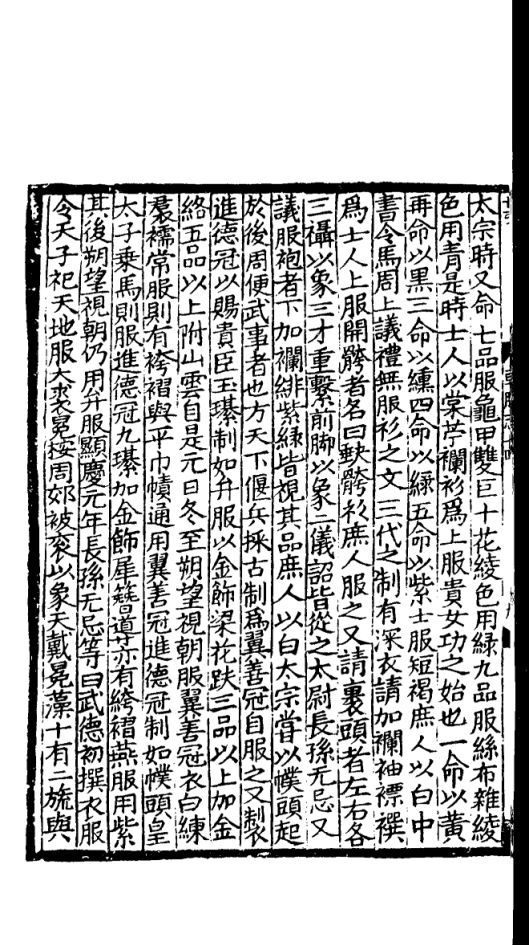 太宗時又命七品服龜甲雙巨十花綾色用綠九品服絲布雜綾
色用青是時士人以棠苧襴衫爲上服貴女功之始也一命以黃
再命以黑三命以纁四命以綠五命以紫士服短褐庶人以白中
書令馬周上議禮無服衫之文三代之制有深衣請加襴袖褾襈
爲士人上服開骻者名曰缺骻衫庶人服之又請裹頭者左右各
三襵以象三才重繫前脚以象二儀詔皆從之太尉長孫无忌又
議服袍者下加襴緋紫綠皆視其品庶人以白太宗嘗以幞頭起
於後周便武事者也方天下偃兵採古制爲翼善冠自服之又製
進德冠以賜貴臣玉璂制如弁服以金飾梁花趺三品以上加金
絡五品以上附山雲自是元日冬至朔望視朝服翼善冠衣白練
裠襦常服則有袴褶與平巾幘通用翼善冠進德冠制如幞頭皇
太子乘馬則服進德冠九璂加金飾犀簪導亦有絝褶燕服用紫
其後朔望視朝仍用弁服顯慶元年長孫无忌等曰武德初撰衣服
令天子祀天地服大裘冕按周郊被衮以象天戴冕藻十有二旒與